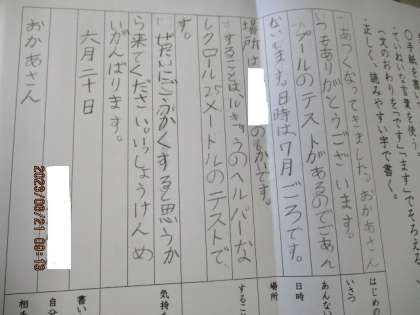 ○手紙を書いて
・ていねいな言葉を使う。
（文のおわりを「です」「ます」でそろえる。
・正しく、読みやすい字で書く。
はじめの
あいさつ
あつくなってきました。おかあさん
いつもありがとうございます。
あんない
プールのテストがあるのでごあん
ないします。日時は7月ごろです。
日時
場所
場所は
のちかいです。
すること
することは、ルキョうのヘルパーな
しクロール25メートルのテストで
す。
気持ち
ぜったいにごうかくすると思うか
ら来てください。いっしょうけんめ
いがんばります。
書い
六月二十日
自分
相手
おかあさん
2023/06/21 09:13